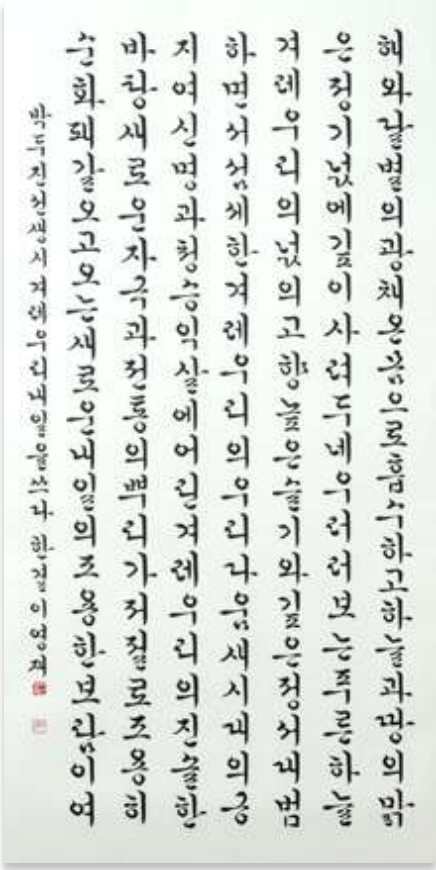 해와달별의광채온몸으로흡수하고하늘과땅의맑
은정기넋에깊이사려두네우러러보는푸른하늘
겨레우리의넋의고향높은슬기와깊은정서대범
하면서섬세한겨레우리의우리다움새시대의긍
지여신명과청승익살에어린겨레우리의진솔한
바탕새로운자극과전통의뿌리가저절로조용히
순화돼갈오고오는새로운내일의조용한보람이여
박두진선생시겨레우리내일을쓰다 한결이영재